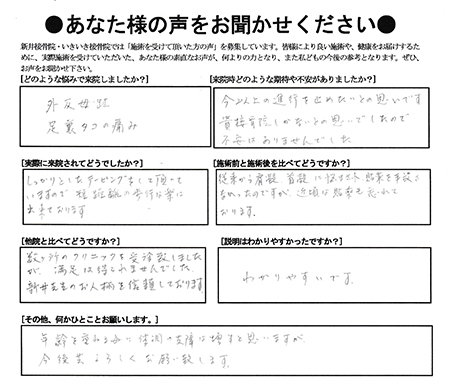 ●あなた様の声をお聞かせください●
新井接骨院・いきいき接骨院では「施術を受けて頂いた方の声」を募集しています。皆様により良い施術や、健康をお届けするため
に、実際施術を受けていただいた、あなた様の素直なお声が、何よりの力となり、また私どもの今後の参考となります。ぜひ、
お声をお聞かせ下さい。
[どのような悩みで来院しましたか?]
外反母趾
足裏タコの痛み
[来院時どのような期待や不安がありましたか?]
今以上の進行を止めたいとの思いです
貴接骨院しかないとの思いでしたので
不安はありませんでした
[実際に来院されてどうでしたか?]
しっかりとしたテーピングをして頂いて
いますので 長距離の歩行も楽に
出来ております
[施術前と施術後を比べてどうですか?]
従来から肩
なかったのですが、近頃は
おります.
[他院と比べてどうですか?]
数ヶ所のクリニックを受診致しました
が、満足は得られませんでした.
新井先生のお人柄を信頼しております
[説明はわかりやすかったですか?]
わかりやすいです.
[その他、何かひとことお願いします。]
年齢を重ねる毎に体調の支障は増すと思いますが.
今後共よろしくお願い致します.